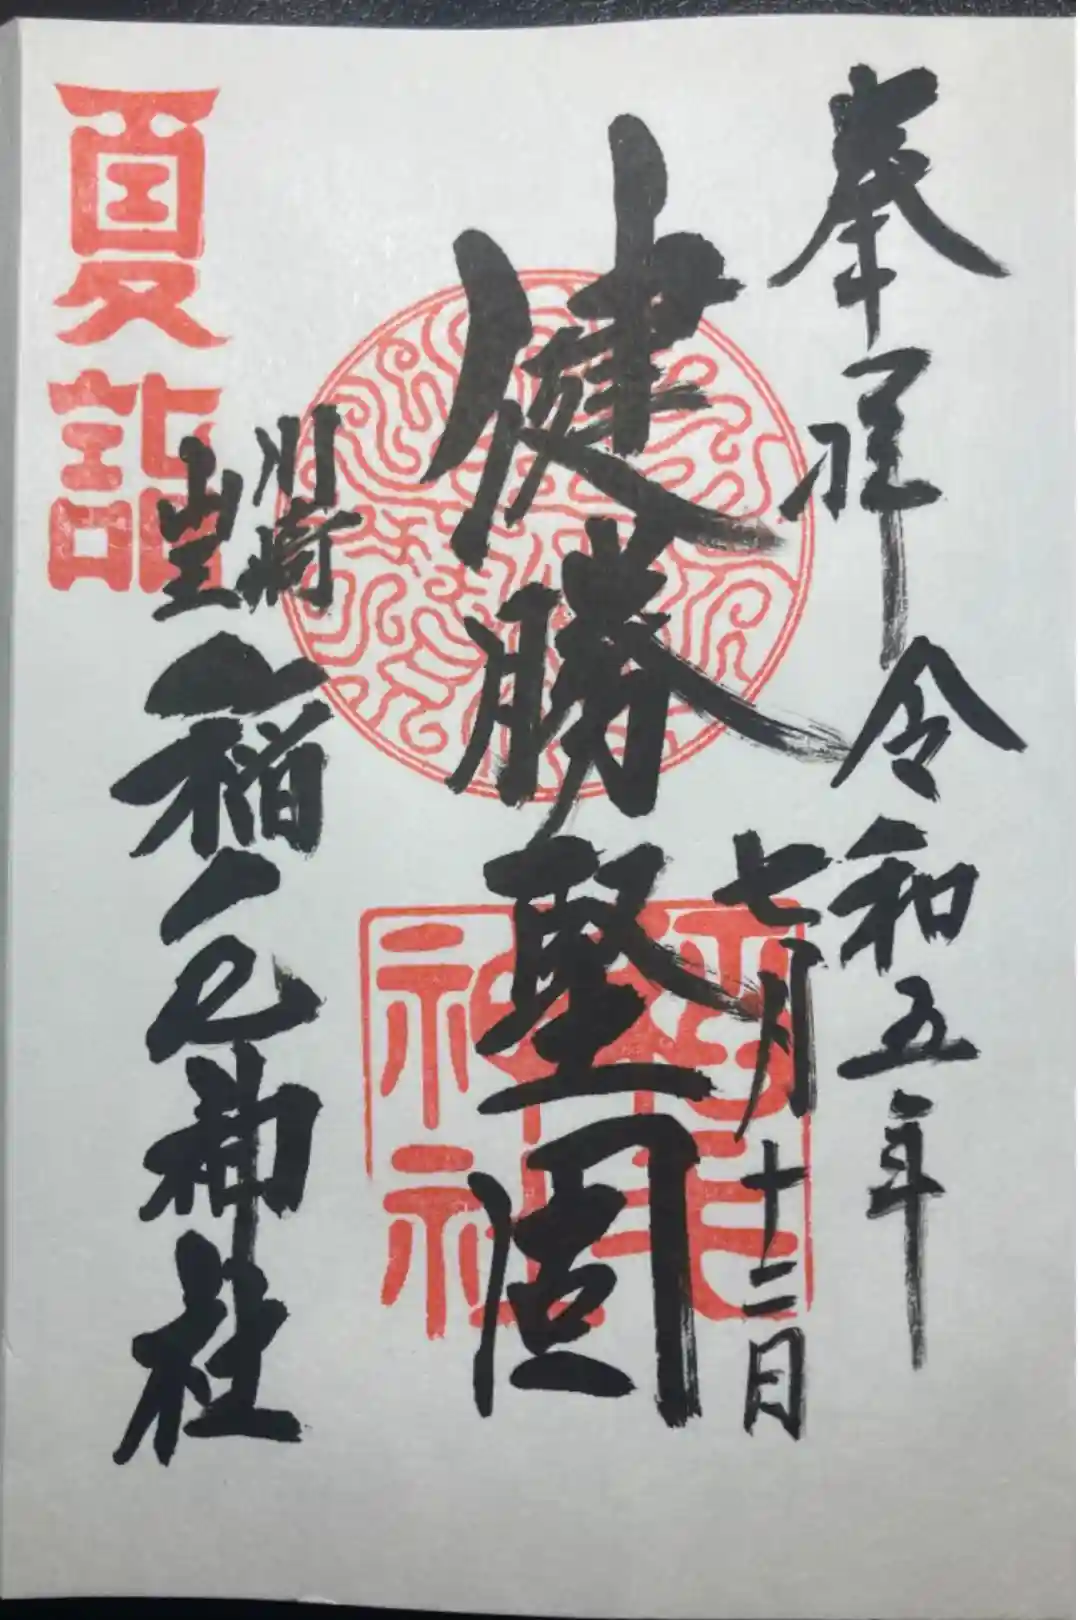 奉拝
令和五年
七月十二日
健勝堅固
川崎
山王
稲毛神社
夏詣